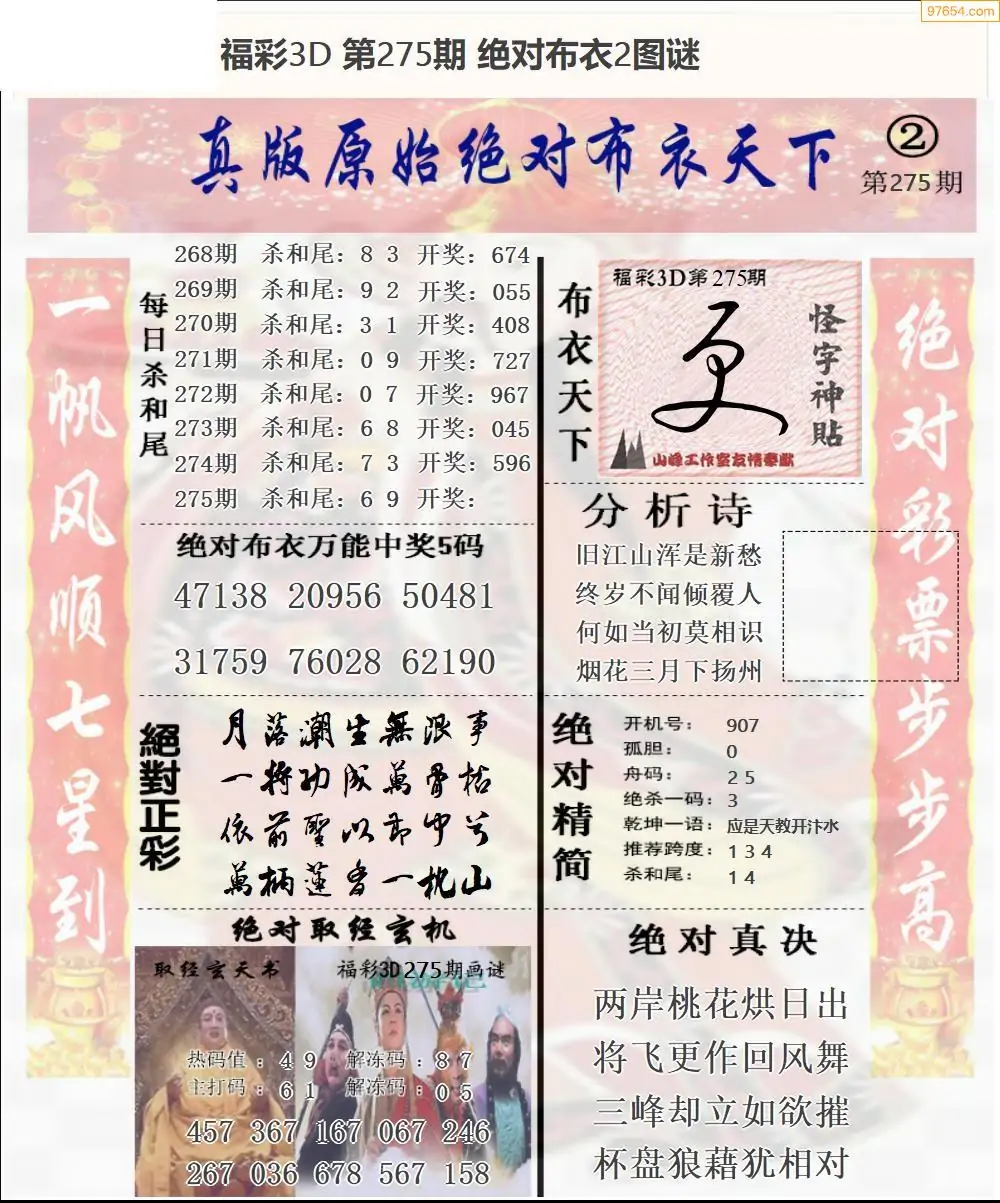 97654.com
福彩3D 第275期 绝对布衣2图谜
真版原始绝对布衣天下
②
第275期
一帆风顺七星到
每日杀和尾
268期 杀和尾：8 3 开奖：674
269期 杀和尾：9 2 开奖：055
270期 杀和尾：3 1 开奖：408
271期 杀和尾：0 9 开奖：727
272期 杀和尾：0 7 开奖：967
273期 杀和尾：6 8 开奖：045
274期 杀和尾：7 3 开奖：596
275期 杀和尾：6 9 开奖：
绝对布衣万能中奖5码
47138 20956 50481
31759 76028 62190
絕對正彩
月落潮生無限事
一将功成萬骨枯
依前聖以即中兮
萬柄蓮香一枕山
绝对取经玄机
取经玄天书
福彩3D275期画谜
热码值：4 9 解冻码：8 7
主打码：6 1 解冻码：0 5
457 367 167 067 246
267 036 678 567 158
布衣天下
福彩3D第275期
怪字神貼
山峰工作室友情奉献
分析诗
旧江山浑是新愁
终岁不闻倾覆人
何如当初莫相识
烟花三月下扬州
绝对精简
开机号：907
孤胆：0
舟码：2 5
绝杀一码：3
乾坤一语：应是天教开汴水
推荐跨度：1 3 4
杀和尾：1 4
绝对真决
两岸桃花烘日出
将飞更作回风舞
三峰却立如欲摧
杯盘狼藉犹相对
绝对彩票步步高